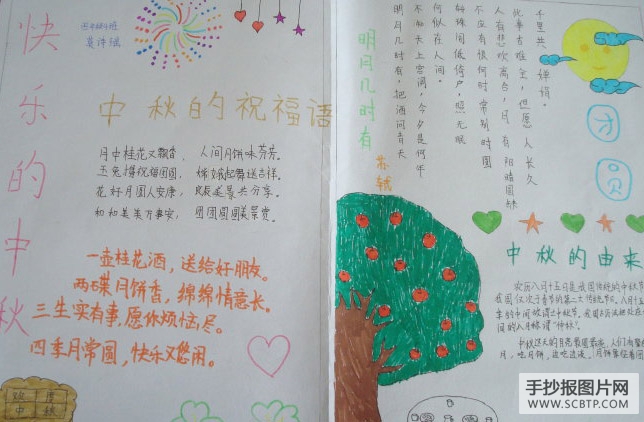 快乐的中秋
中秋的祝福语
月中桂花又飘香，人间月饼味芬芳。
玉兔捧祝福团圆，嫦娥起舞送吉祥。
花好月圆人安康，良辰美景共分享。
和和美美万事安，团团圆圆美景赏。
一壶桂花酒，送给好朋友。
两碟月饼香，绵绵情意长。
三生实有事，愿你烦恼尽。
四季月常圆，快乐又悠闲。
欢度
中秋
明月几时有
苏轼
明月几时有，把酒问青天
不知天上宫阙，今夕是何年
何似在人间。
转珠阁低绮户，照无眠
不应有恨何时常别时圆
人有悲欢离合，月有阴晴圆缺
此事古难全，但愿人长久
千里共婵娟。
团圆
中秋的由来
农历八月十五日是我国传统的中秋节
手抄报图片网
WWW.SCBTP.COM